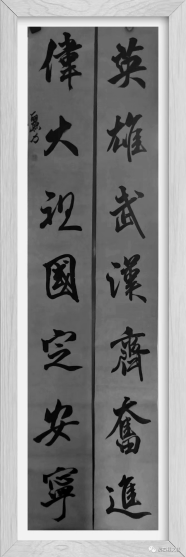 英雄武漢齊奮進
偉大祖國定安寧